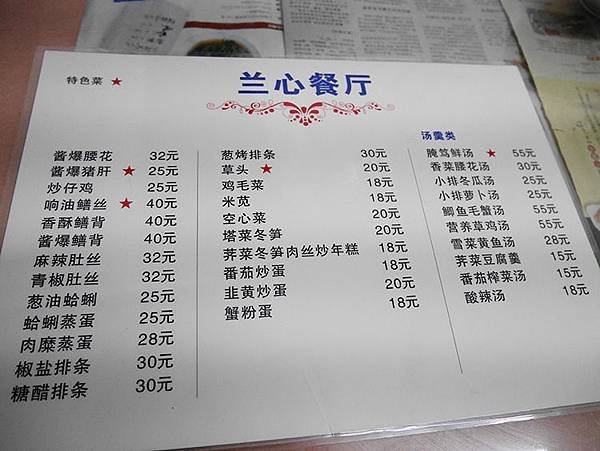 兰心餐厅
特色菜 ★
酱爆腰花 32元
酱爆猪肝 ★ 25元
炒仔鸡 25元
响油鳝丝 ★ 40元
香酥鳝背 40元
酱爆鳝背 40元
麻辣肚丝 32元
青椒肚丝 32元
葱油蛤蜊 25元
蛤蜊蒸蛋 25元
肉糜蒸蛋 28元
椒盐排条 30元
糖醋排条 30元
葱烤排条 30元
草头 ★ 20元
鸡毛菜 18元
米苋 18元
空心菜 18元
塔菜冬笋 20元
荠菜冬笋肉丝炒年糕 18元
番茄炒蛋 18元
韭黄炒蛋 20元
蟹粉蛋 18元
汤羹类
腌笃鲜汤 ★ 55元
香菜腰花汤 30元
小排冬瓜汤 25元
小排萝卜汤 25元
鲫鱼毛蟹汤 55元
营养草鸡汤 55元
雪菜黄鱼汤 28元
荠菜豆腐羹 15元
番茄榨菜汤 15元
酸辣汤 18元